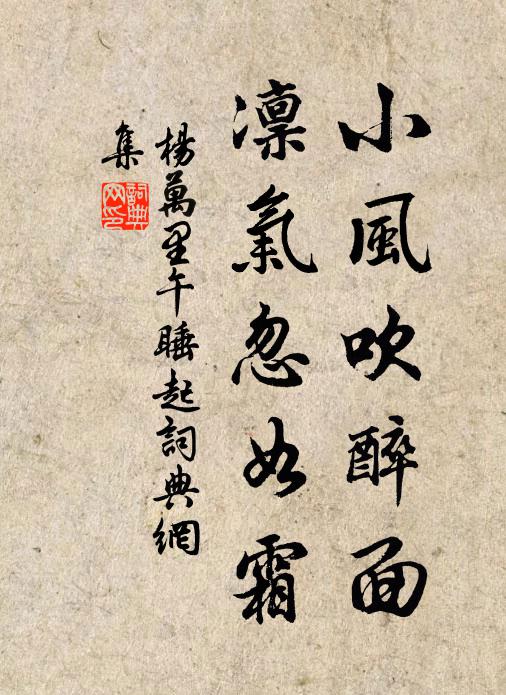 小風吹醉面
凛氣忽如霜
楊萬里午睡起詞典網
集
詞典網印